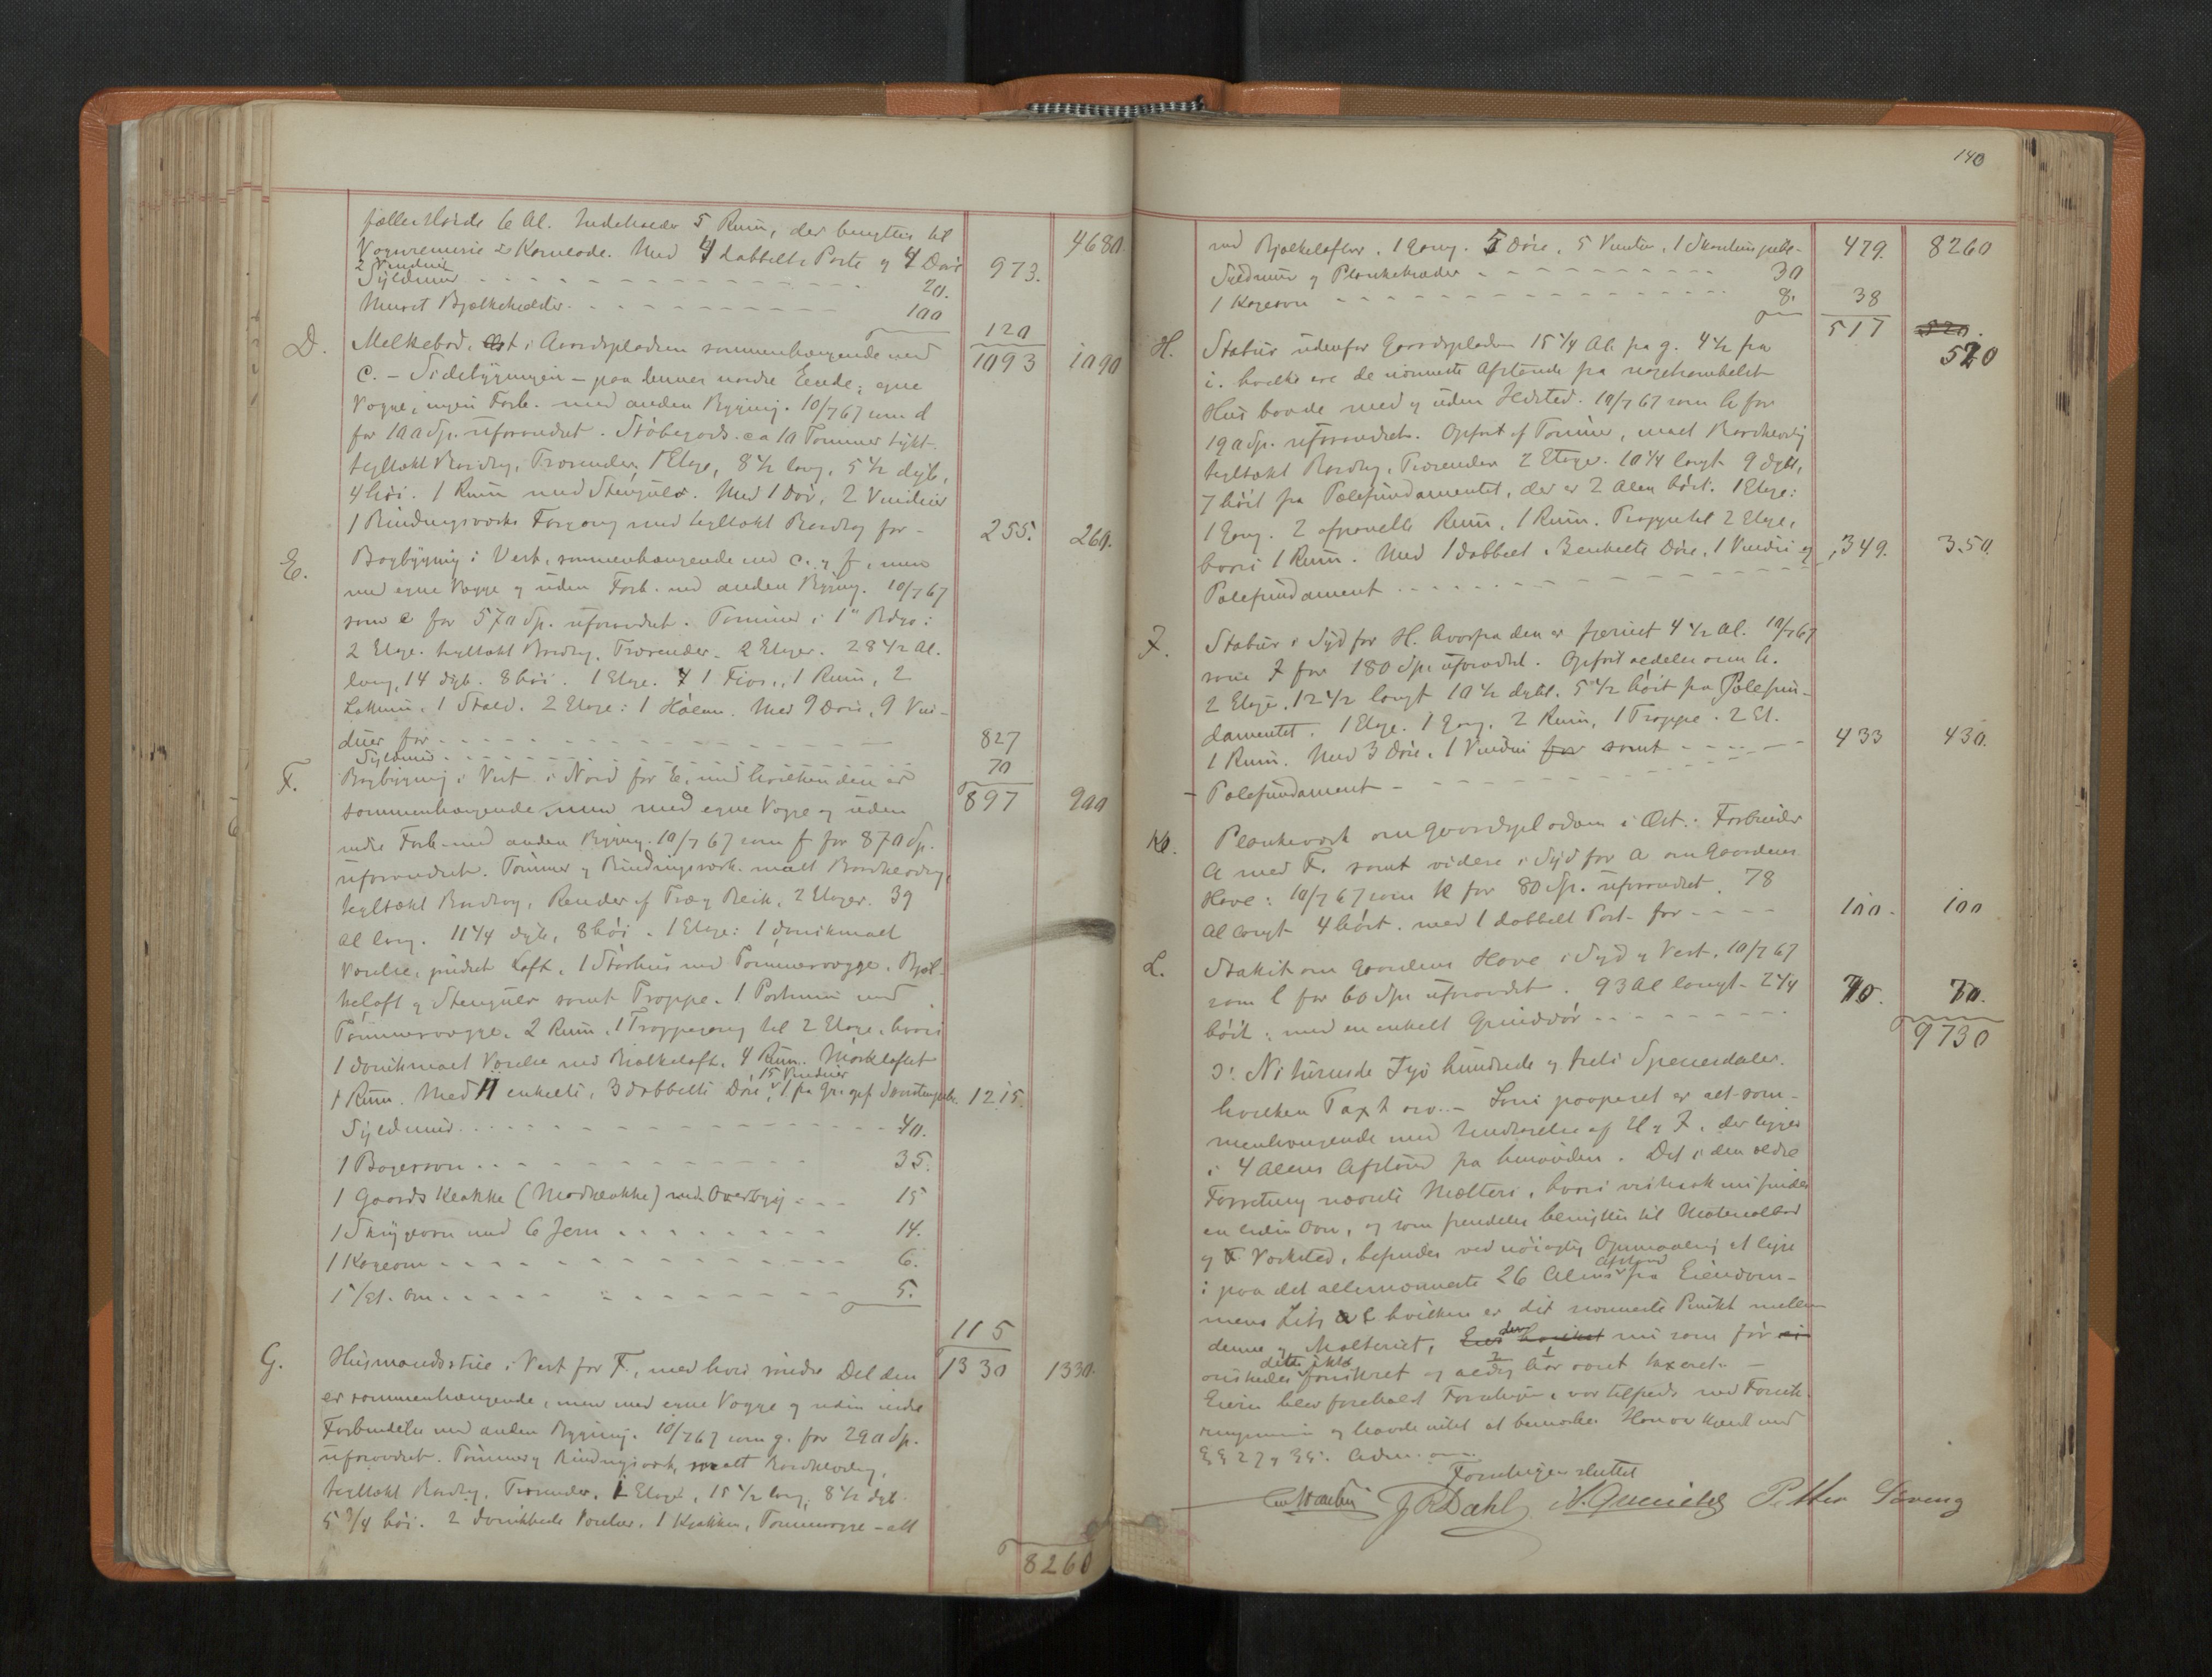 fællesHøide 6 Al. Indeholder 5 Rum, der benyttes til 4680.
Vognremise & Kornlode. Med 4 dobbelte Porte og 4 Døre 973.
2 Vinduer
Syldmur 20.
Muret Bjælkekjelder 100
120
D. Melkebod, Øst i Gaardspladsen sammenhængende med 1093 1090
C. – Sidebygningen – paa dennes nordre Ende; egne
Vægge, ingen Forb. med anden Bygning. 10/7 67 som d
for 100 Sp. uforandret. Støbegods. ca 10 Tommer tykt.
tegltækt Bordtag, Trærender, 1 Etage, 8 1/2 lang, 5 1/2 dyb,
4 høi. 1 Rum med Stengulv. Med 1 Dør, 2 Vinduer
1 Bindingsværks Forgang med tegltækt Bordtag for – 255. 260.
E. Bagbygning i Vest, sammenhængende med C. og f, men
med egne Vægge og uden Forb. med anden Bygning. 10/7 67
som e for 570 Sp. uforandret. Tømmer i 1" Bdgs:
2 Etage. tegltækt Bordtag, Trærender. 2 Etager. 28 1/2 Al.
lang, 14 dyb. 8 høi. 1 Etage. 1 Fjøs, 1 Rum, 2
Lokum, 1 Stald. 2 Etage: 1 Hølem. Med 9 Døre, 9 Vin-
duer for 827
Syldmur 70
F. Bagbygning i Vest i Nord for E, med hvilken den er 897 900
sammenhængende men med egne Vægge og uden
indre Forb. med anden Bygning. 10/7 67 som f for 870 Sp.
uforandret. Tømmer og Bindingsværk. malt Bordklædng,
tegltækt Bordtag, Render af Træ og Blik, 2 Etager. 39
Al lang. 11 1/4 dyb, 8 høi. 1 Etage: 1 donikmalt
Værelse, pudset Loft, 1 Størhus med Tømmervægge, Bjæl-
keloft og Stengulv samt Trappe. 1 Portrum med
Tømmervægge. 2 Rum, 1 Trappegang til 2 Etage, hvori
1 donikmalt Værelse med Bjælkeloft, 4 Rum. Mørkloftet
15 Vinduer
1 Rum. Med 11 enkelte, 3 dobbelte Døre, 1 fra Gr. opf Skorstenspibe. 1215.
Syldmur 40.
1 Bagerovn 35.
1 Gaards Klokke (Madklokke) med Overbyg 15
1 Strygeovn med 6 Jern 14.
1 Kogeovn 6.
1 1/Et. Ovn 5.
115
G. Husmandsstue i Vest for F., med hvis søndre Del den 1330 1330.
er sammenhængende, men med egne Vægge og uden indre
Forbindelse med anden Bygning. 10/7 67 som g. for 290 Sp.
uforandret. Tømmer og Bindingsværk, malt Bordklædng,
tegltækt Bordtag, Trærender, 1 Etage, 15 1/2 lang, 8 1/2 dyb.
5 3/4 høi. 2 Værelser, 1 Kjøkken, Tømmervægge – alt
8260
140
med Bjælkelofter. 1 Gang. 5 Døre, 5 Vinduer, 1 Skorstenspibe- 479. 8260
Syldmur og Plankekræder 30
1 Kogeovn 8. 38
517 520.
H. Stabur udenfor Gaardspladsen 15 1/4 Al. fra g. 4 1/2 fra 520
i. hvilke ere de nærmeste Afstande fra nogetsomhelst
Hus baade med og uden Ildsted. 10/7 67 som h for
190 Sp. uforandret. Opført af Tømmer, malt Bordklædng
tegltækt Bordtag, Trærender 2 Etager. 10 1/4 langt 9 dybt,
7 høit fra Pælefundamentet, der er 2 Alen høit. 1 Etage:
1 Gang. 2 afpanelte Rum, 1 Rum. Trappe til 2 Etage,
hvori 1 Rum. Med 1 dobbelt, 3 enkelte Døre, 1 Vindu og 349. 350.
Pælefundament
J. Stabur i Syd for H. hvorfra den er fjernet 4 1/2 Al. 10/7 67
som J for 180 Sp. uforandret. Opført aldeles som h.
2 Etage, 12 1/2 langt 10 1/2 dybt. 5 1/2 høit fra Pælefun-
damentet. 1 Etage. 1 Gang, 2 Rum, 1 Trappe. 2 Et.
1 Rum. Med 3 Døre, 1 Vindu for samt 433 430.
Pælefundament
K. Plankeværk om Gaardspladsen i Øst: Forbinder
A med F. samt videre i Syd for A om Gaardens
Have: 10/7 67 som k for 80 Sp. uforandret. 78
Al langt 4 høit. med 1 dobbelt Port for 100. 100
L. Stakit om Gaardens Have i Syd og Vest. 10/7 67
som l for 60 Sp. uforandret. 93 Al langt 2 1/4 70. 70.
høit; med en enkelt Grinddør
9730
ɔ: Ni tusinde Syv hundrede og treti Speciedaler.
hvilken Taxt osv. – Som paapeget er alt sam-
menhængende med Undtagelse af H og J, der ligger
i 4 Alens Afstand fra hinanden. Det i den ældre
Forretning nævnte Mælteri, hvori vistnok nu findes
en liden Ovn, og som fremdeles benyttes til Materialbod
og Værksted, befindes ved nøiagtig Opmaaling at ligge
Afstand
i paa det allernærmeste 26 Alens fra Eiendom-
mens Litr a & l hvilken er det nærmeste Punkt mellem
denne og Malteriet, der nu som før ei
dette ikke
ønskedes forsikret og aldrig har været taxeret. –
Eieren blev foreholdt Forretningen, var tilfreds med Forsik-
ringssummen og havde intet at bemærke. Han er kjendt med
§§ 27 og 35. Adm.
Forretningen sluttet
J R Dahl N. Petter Søreng